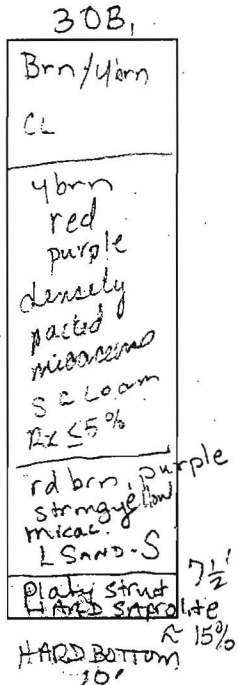 30B,
Brn/ybrn
CL
ybrn
red
purple
densely
packed
micaceous
SC Loam
Rx ≤5%
rd brn, purple
strong yellow
micac.
L SAND-S
7½'
Platy struct
HARD Saprolite
≈ 15%
HARD BOTTOM
10'